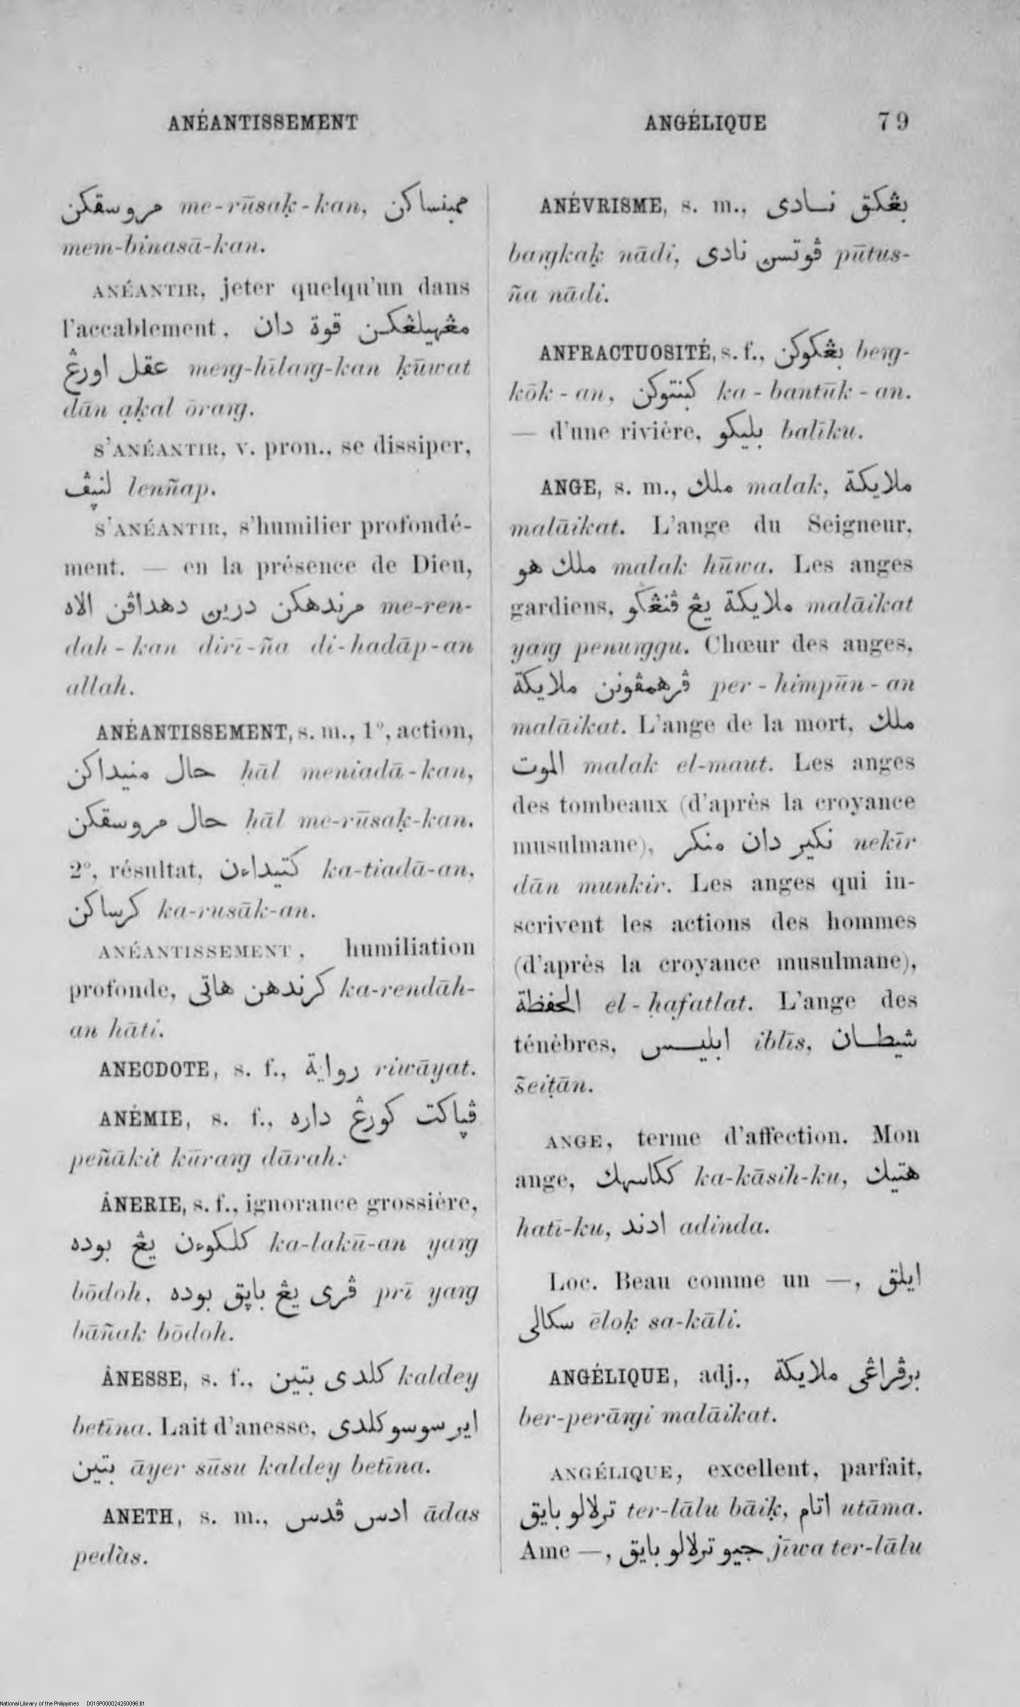 ANÉANTISSEMENT
ANGÉLIQUE 79
مروسقكن me-rūsaḳ-kan, ممبنساكن
mem-bīnasā-kan.
ANÉANTIR, jeter quelqu'un dans
l'accablement, مڠهيلڠكن قوة دان
عقل اورڠ meng-hīlang-kan ḳūwat
dān aḳal ōrang.
S'ANÉANTIR, v. pron., se dissiper,
لنيڤ leññap.
S'ANÉANTIR, s'humilier profondé-
ment. — en la présence de Dieu,
مرندهكن درين دهداڤن الله me-ren-
dah-kan dirī-ña di-hadāp-an
allah.
ANÉANTISSEMENT, s. m., 1°, action,
حال منيداكن ḥāl meniadā-kan,
حال مروسقكن ḥāl me-rūsaḳ-kan.
2°, résultat, كتيداءن ka-tiadā-an,
كرساكن ka-rusāk-an.
ANÉANTISSEMENT, humiliation
profonde, كرندهن هاتى ka-rendāh-
an hāti.
ANECDOTE, s. f., رواية riwāyat.
ANÉMIE, s. f., ڤپاكت كورڠ داره
peñākit kūrang dārah.
ÂNERIE, s. f., ignorance grossière,
كلكوءن يڠ بوده ka-lakū-an yang
bōdoh, ڤرى يڠ باپق بوده prī yang
bāñak bōdoh.
ÂNESSE, s. f., كلدى بتين kaldey
betīna. Lait d'anesse, اير سوسو كلدى
بتين āyer sūsu kaldey betīna.
ANETH, s. m., ادس ڤدس ādas
pedàs.
ANÉVRISME, s. m., بڠكق نادى
bangkaḳ nādi, ڤوتسن نادى pūtus-
ña nādi.
ANFRACTUOSITÉ, s. f., بڠكوكن beng-
kōk-an, كبنتوكن ka-bantūk-an.
— d'une rivière, بليكو balīku.
ANGE, s. m., ملك malak, ملايكة
malāikat. L'ange du Seigneur,
ملك هو malak hūwa. Les anges
gardiens, ملايكة يڠ ڤنڠكو malāikat
yang penunggu. Chœur des anges,
ڤرهمڤونن ملايكة per-himpūn-an
malāikat. L'ange de la mort, ملك
الموت malak el-maut. Les anges
des tombeaux (d'après la croyance
musulmane), نكير دان منكر nekīr
dān munkir. Les anges qui in-
scrivent les actions des hommes
(d'après la croyance musulmane),
الحفظة el-ḥafatlat. L'ange des
ténèbres, ابليس iblīs, شيطان
šeiṭān.
ANGE, terme d'affection. Mon
ange, ككاسهك ka-kāsih-ku, هتيك
hatī-ku, ادند adinda.
Loc. Beau comme un —, ايلق
سكالى ēloḳ sa-kāli.
ANGÉLIQUE, adj., برڤراڠى ملايكة
ber-perāngi malāikat.
ANGÉLIQUE, excellent, parfait,
ترلالو بايق ter-lālu bāiḳ, اتام utāma.
Ame —, جيو ترلالو بايق jīwa ter-lālu